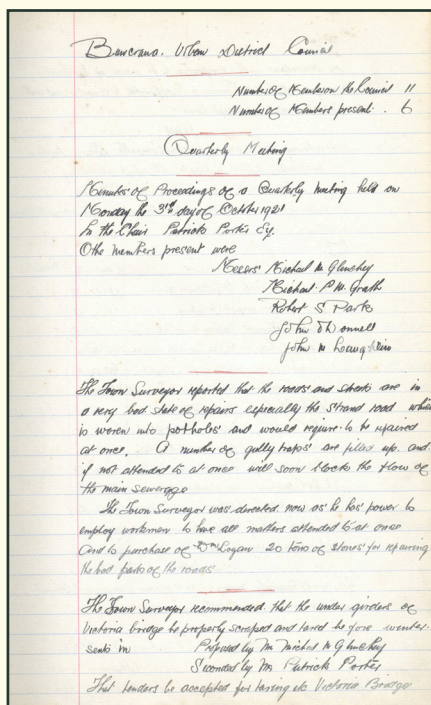 Buncrana. Urban District Council
Number of Members on the Council 11
Number of Members present. 6
Quarterly Meeting
Minutes of Proceedings of a Quarterly Meeting held on
Monday the 3rd day of October 1921
In the Chair Patrick Porter Esq.
Other members present were
Messrs Michael McGlinchey
Michael P McGrath
Robert S Park
John O'Donnell
John McLaughlin
The Town Surveyor reported that the roads and streets are in
a very bad state of repairs especially the strand road which
is woren into potholes and would require to be repaired
at once. A number of gully traps are filled up and
if not attended to at once will soon block the flow of
the main sewerage
The Town Surveyor was directed now as he has power to
employ workmen to have all matters attended to at once
and to purchase of Wm Logan 20 tons of stones for repairing
the bad parts of the roads
The Town Surveyor recommended that the under girders of
Victoria bridge be properly scraped and tared before winter
sets in Proposed by Mr Michael McGlinchey
Seconded by Mr Patrick Porter
That tenders be accepted for taring etc Victoria Bridge